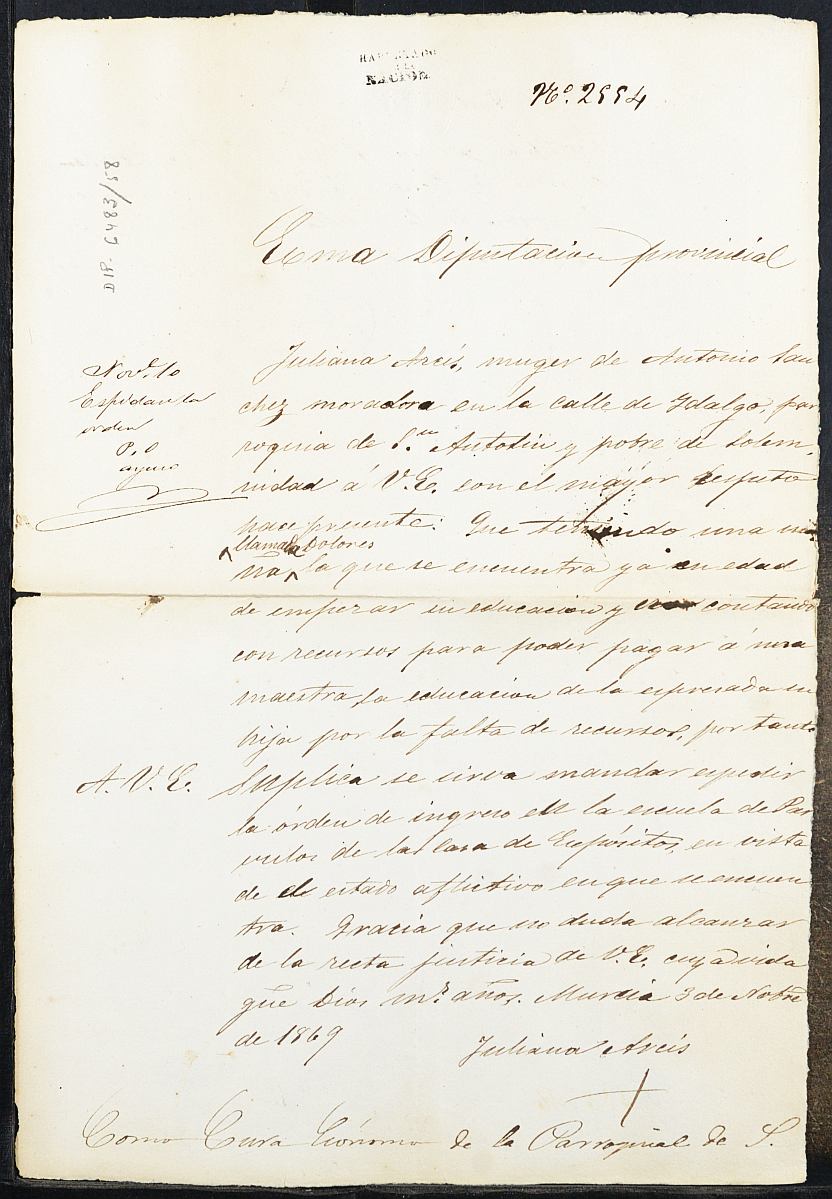 HABILITADO
NACION
No. 2554
DIP. 6483/58
Exma Diputacion provincial
Novbe. 10
Espidan la
orden
P. O
Juliana Arcis, muger de Antonio San
chez moradora en la calle de Ydalgo, par
roquia de S.n Antolin y pobre de solem,
nidad á V.E. con el mayor respeto
hace presente: Que teniendo una ni
llamada Dolores
ña la que se encuentra ya en edad
de empezar su educacion y contando
con recursos para poder pagar á una
maestra la educacion de la espresada su
hija por la falta de recursos, por tanto
A. V. E. Suplica se sirva mandar espedir
la órden de ingreso en la escuela de Par
vulos de la Casa de Expósitos, en vista
de el estado aflictivo en que se encuen
tra. Gracia que no duda alcanzar
de la recta justicia de V.E. cuya vida
gue Dios ms. años. Murcia 3 de Nobre
de 1869
Juliana Arcis
Como Cura Ecónomo de la Parroquial de S.